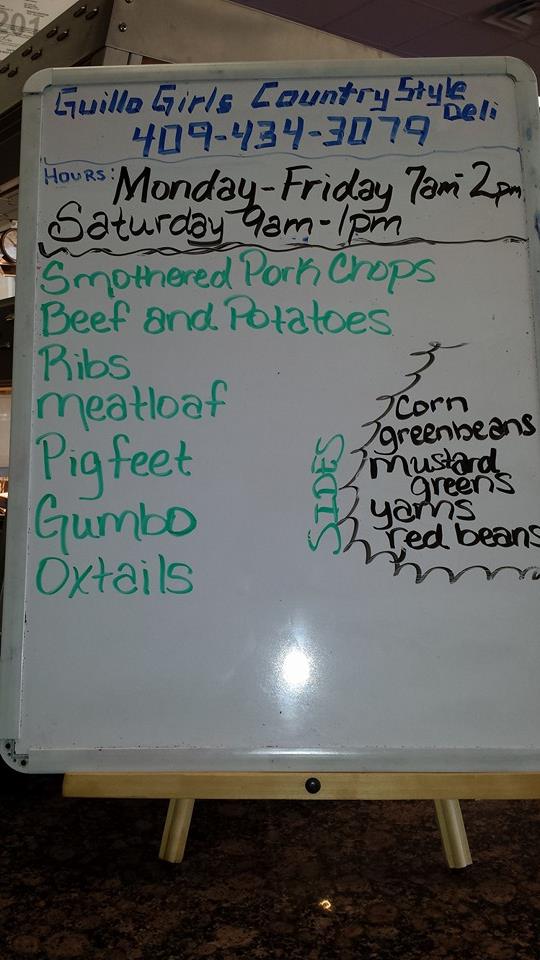 201
Guillo Girls Country Style
Deli
409-434-3079
Hours: Monday-Friday 7am-2pm
Saturday 9am-1pm
Smothered Pork Chops
Beef and Potatoes
Ribs
meatloaf
Pigfeet
Gumbo
Oxtails
SIDES
corn
greenbeans
mustard
greens
yams
red beans